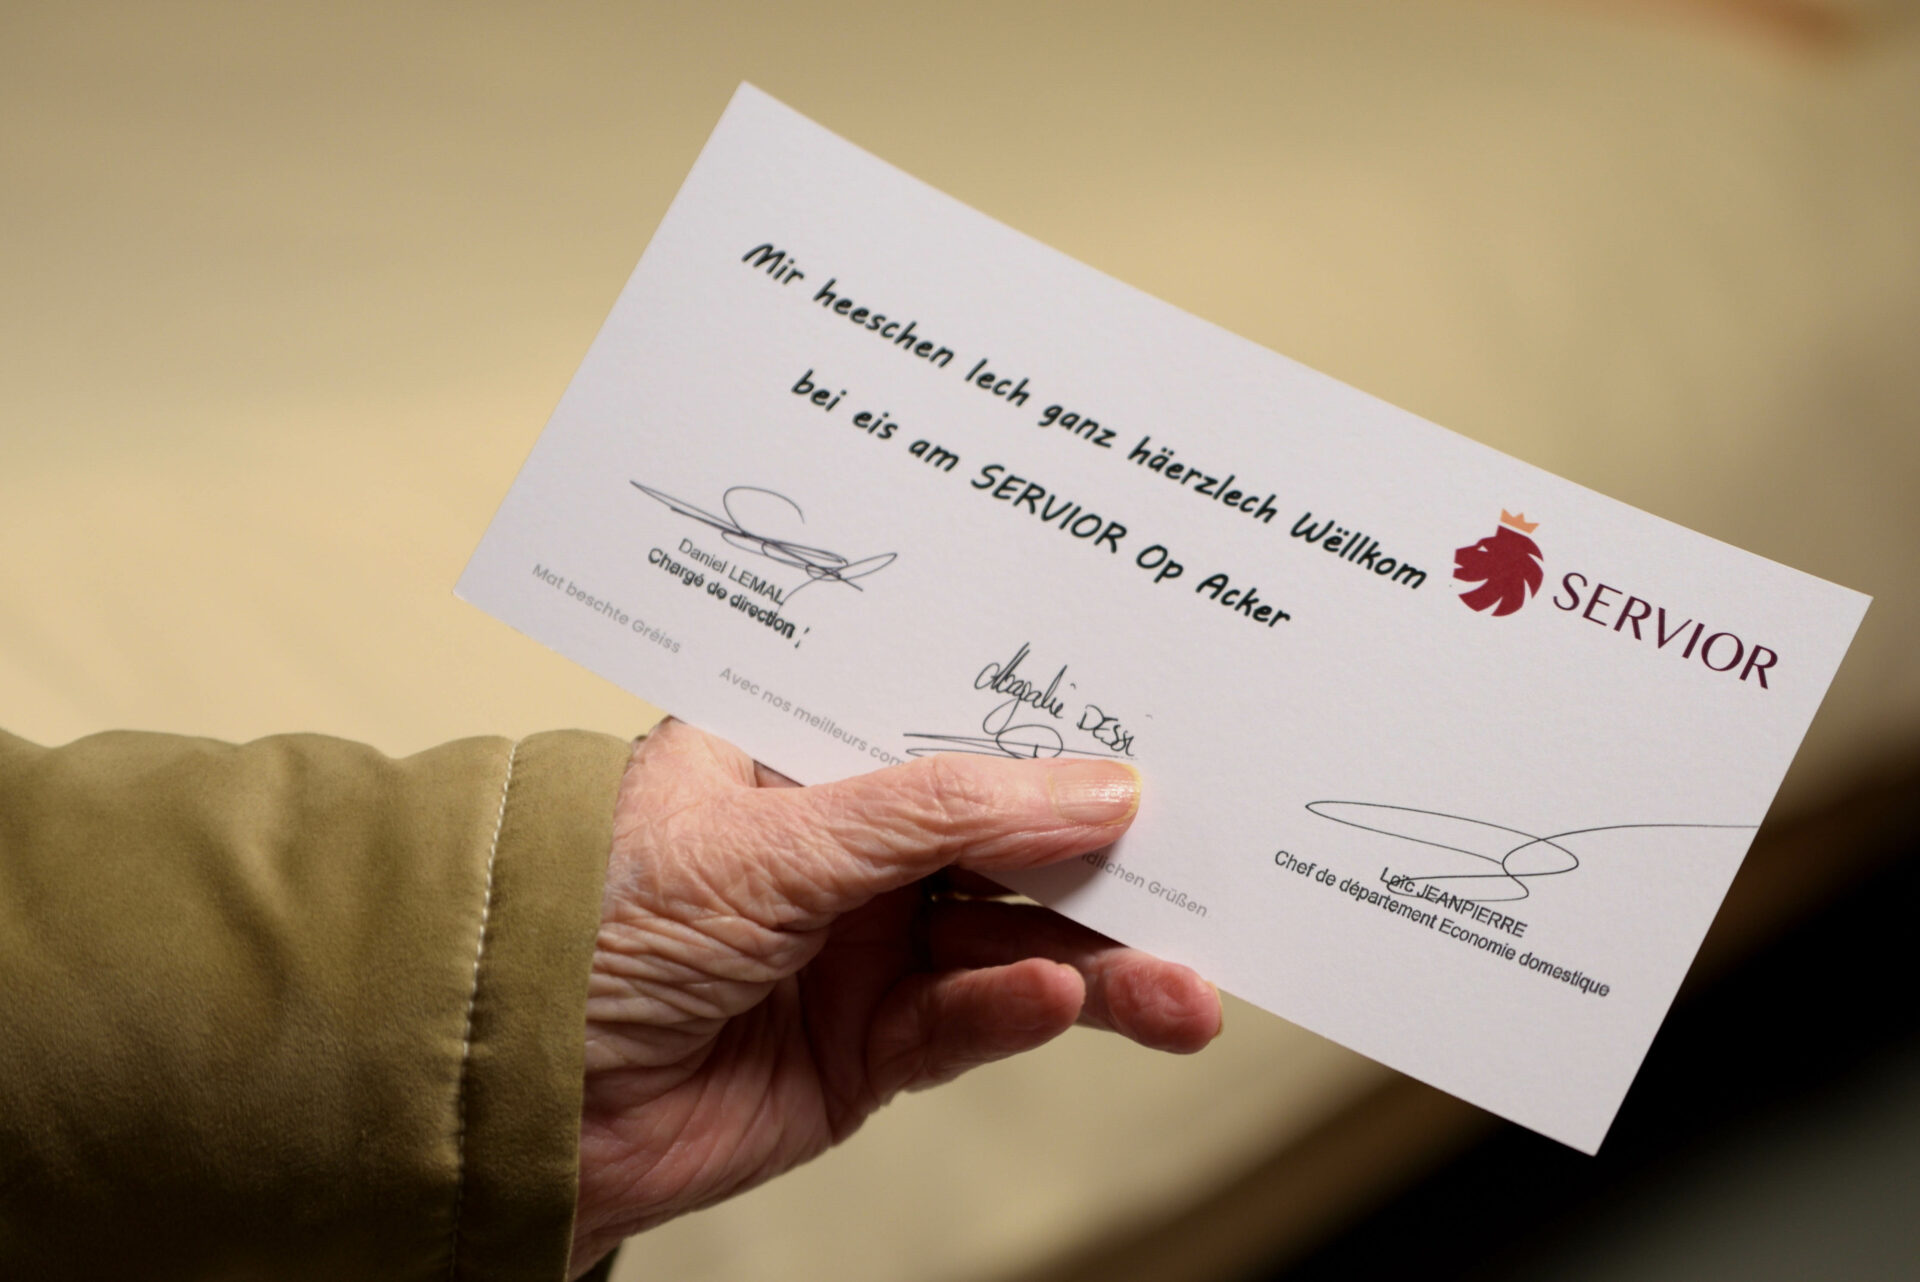 Mir heeschen Iech ganz häerzlech Wëllkom
bei eis am SERVIOR Op Acker
SERVIOR
Daniel LEMAL
Chargé de direction
Magalie DESSI
Loïc JEANPIERRE
Chef de département Economie domestique
Mat beschte Gréiss
Avec nos meilleurs
Grüßen